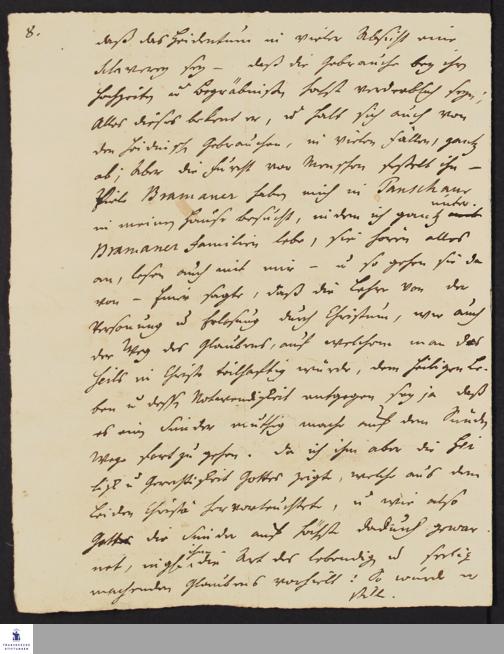 8.
daß das Heidentum in vieler Absicht eine
Sclaverey sey – daß die Gebräuche bey ihren
Hochzeiten u Begräbnißen höchst verderblich seyn;
Alles dieses bekent er, u hält sich auch von
den heidnischen Gebräuchen, in vielen Fällen, gantz
ab; Aber die Furcht vor Menschen fesselt ihn –
Viele Bramaner haben mich in Tanschaur
in meinem Hause besucht, indem ich gantz unter
Bramaner Familien lebe, sie hören alles
an, lesen auch mit mir – u so gehen sie da
von – Einer sagte, daß die Lehre von der
Versönung u Erlösung durch Christum, wie auch
der Weg des Glaubens, auf welchem man des
Heils in Christo teilhaftig würde, dem heiligen Le-
ben u deßen Notwendigkeit entgegen sey ja daß
es ein Sünder muthig mache auf dem Sünden
Wege fort zu gehen. Da ich ihm aber die Hei
ligk u Gerechtigkeit Gottes zeigt, welche aus dem
Leiden Christi hervorleuchtete, u wie also
die Sünder auf höchst dadurch gewar
net, die Art des lebendig u seelig
machenden Glaubens vorhielt: So wurde er
still.
FRANCKESCHE
STIFTUNGEN